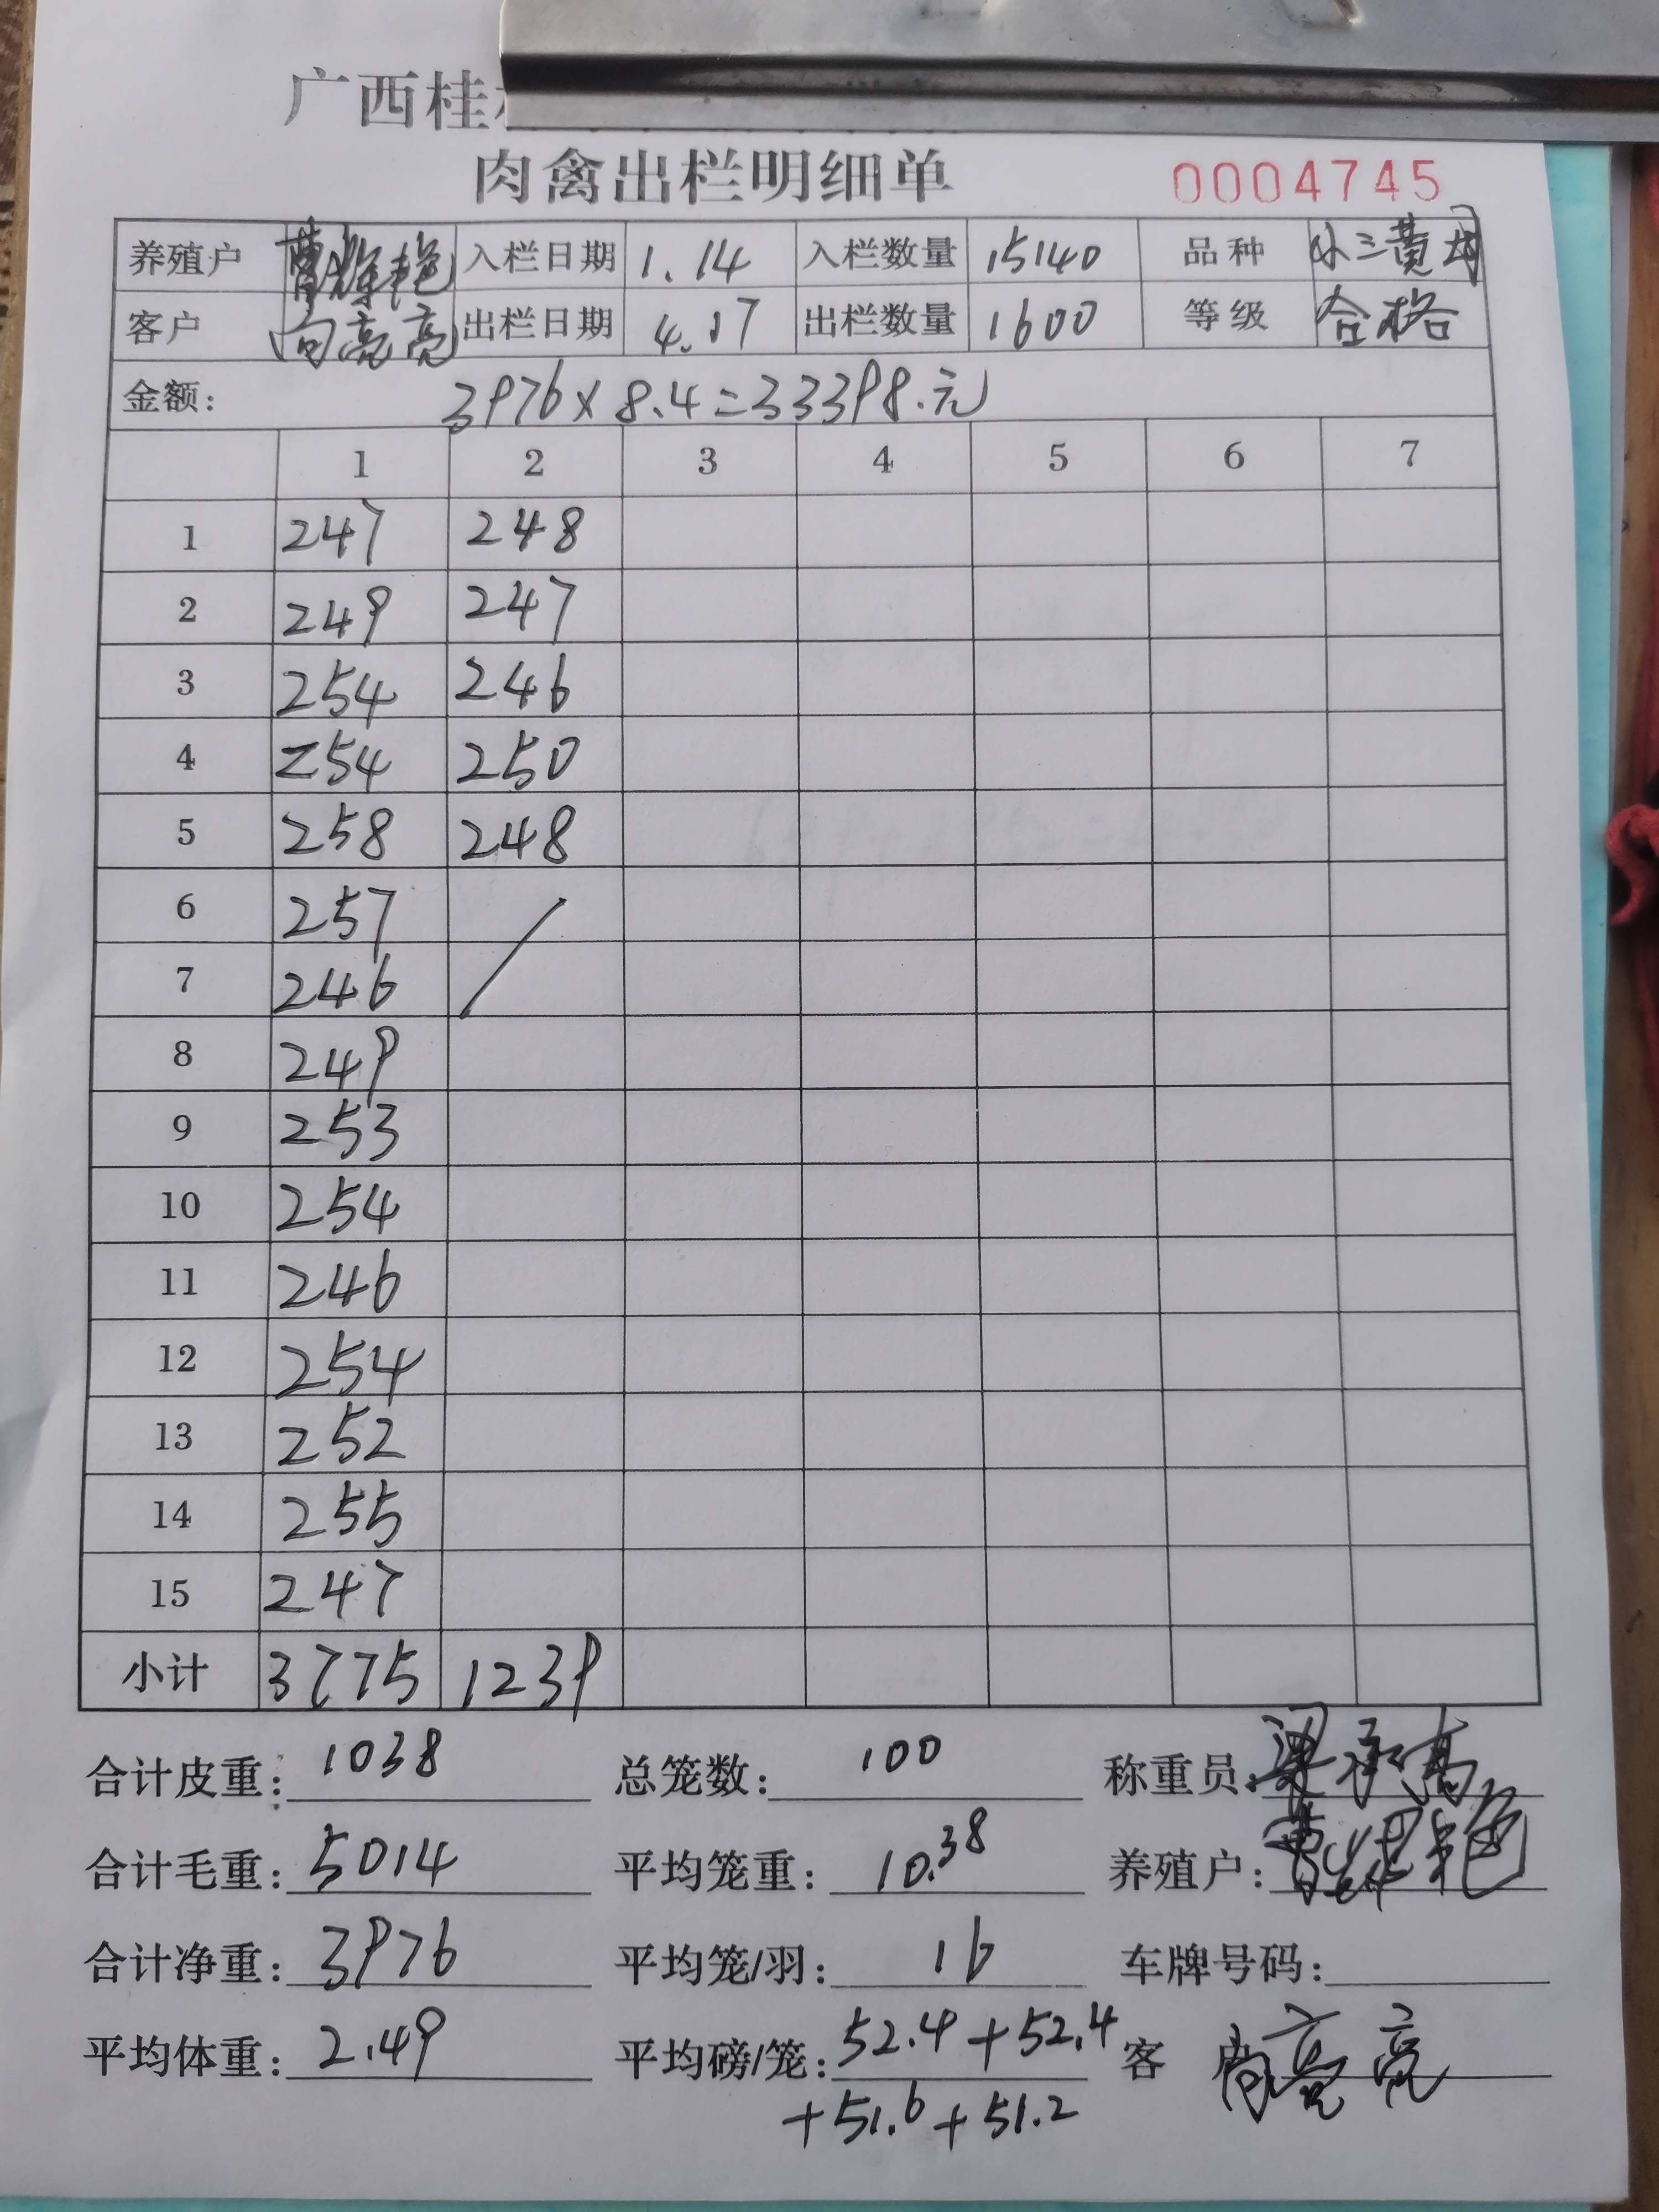 广西桂
肉禽出栏明细单 0004745
养殖户 入栏日期 1.14 入栏数量 15140 品种 小三黄母
客户 向亮亮 出栏日期 4.17 出栏数量 1600 等级 合格
金额: 3976×8.4=33398.元
1 2 3 4 5 6 7
1 247 248
2 249 247
3 254 246
4 254 250
5 258 248
6 257
7 246
8 249
9 253
10 254
11 246
12 254
13 252
14 255
15 247
小计 3775 1239
合计皮重: 1038 总笼数: 100 称重员:
合计毛重: 5014 平均笼重: 10.38 养殖户:
合计净重: 3976 平均笼/羽: 16 车牌号码:
平均体重: 2.49 平均磅/笼: 52.4+52.4 客户 向亮亮
+51.6+51.2